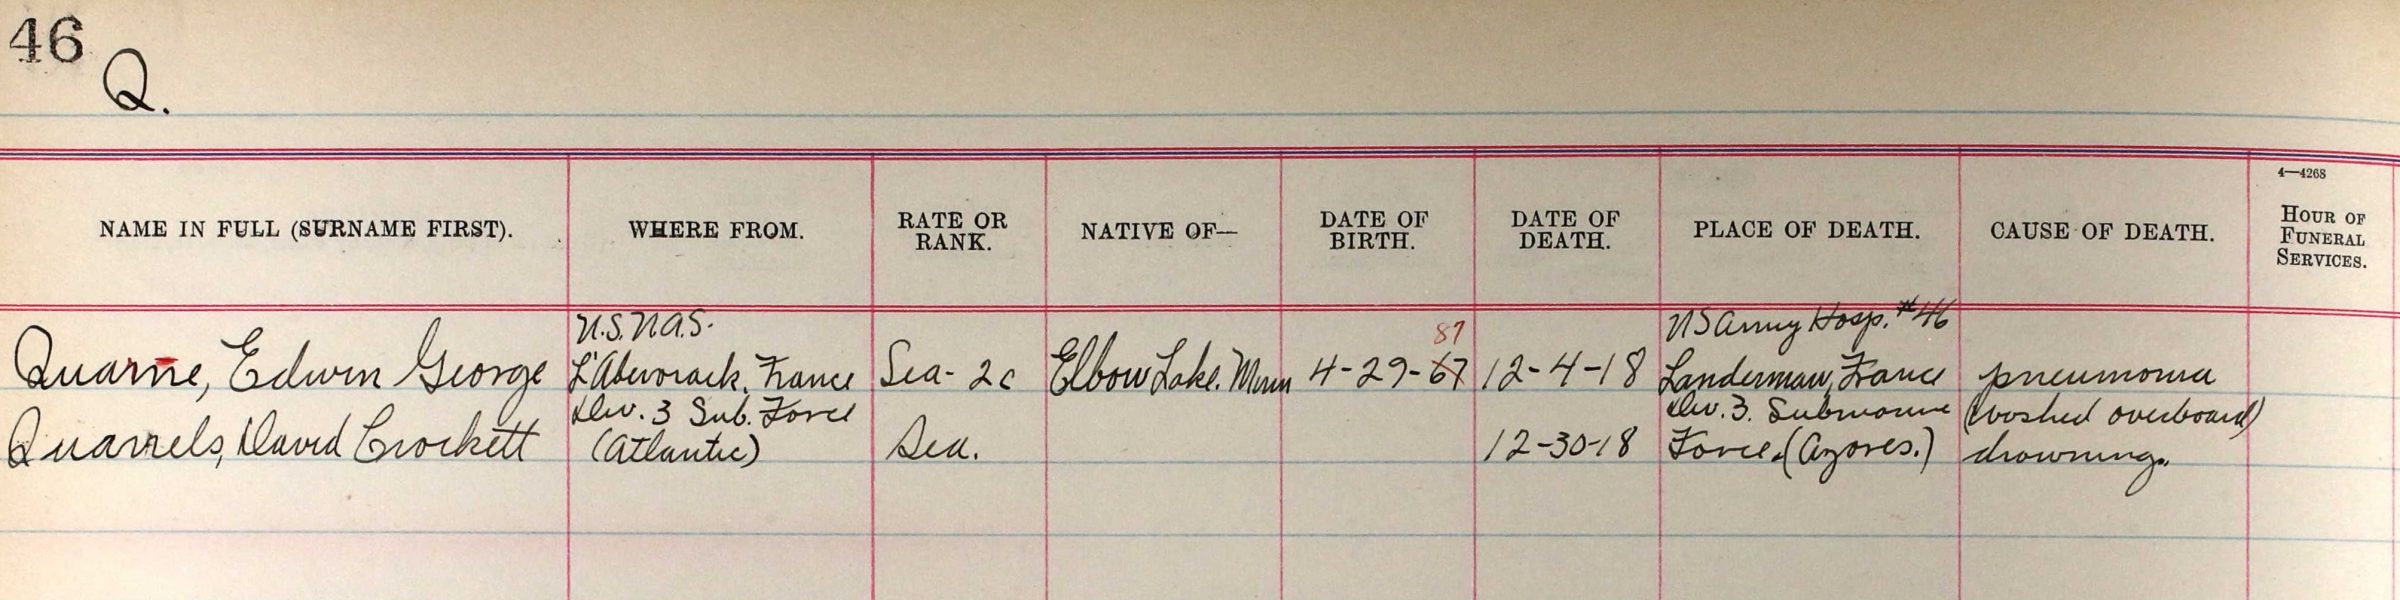 46
Q.
4—4268
NAME IN FULL (SURNAME FIRST). WHERE FROM. RATE OR RANK. NATIVE OF— DATE OF BIRTH. DATE OF DEATH. PLACE OF DEATH. CAUSE OF DEATH. HOUR OF FUNERAL SERVICES.
U.S.N.A.S. US Army Hosp. #46
87
Quarne, Edwin George L'Aberwrack, France Sea-2c Elbow Lake. Minn 4-29-67 12-4-18 Landernau, France pneumonia
Div. 3 Sub. Force Div. 3. Submarine (washed overboard)
Quarrels, David Crockett (Atlantic) Sea. 12-30-18 Force. (Azores.) drowning.